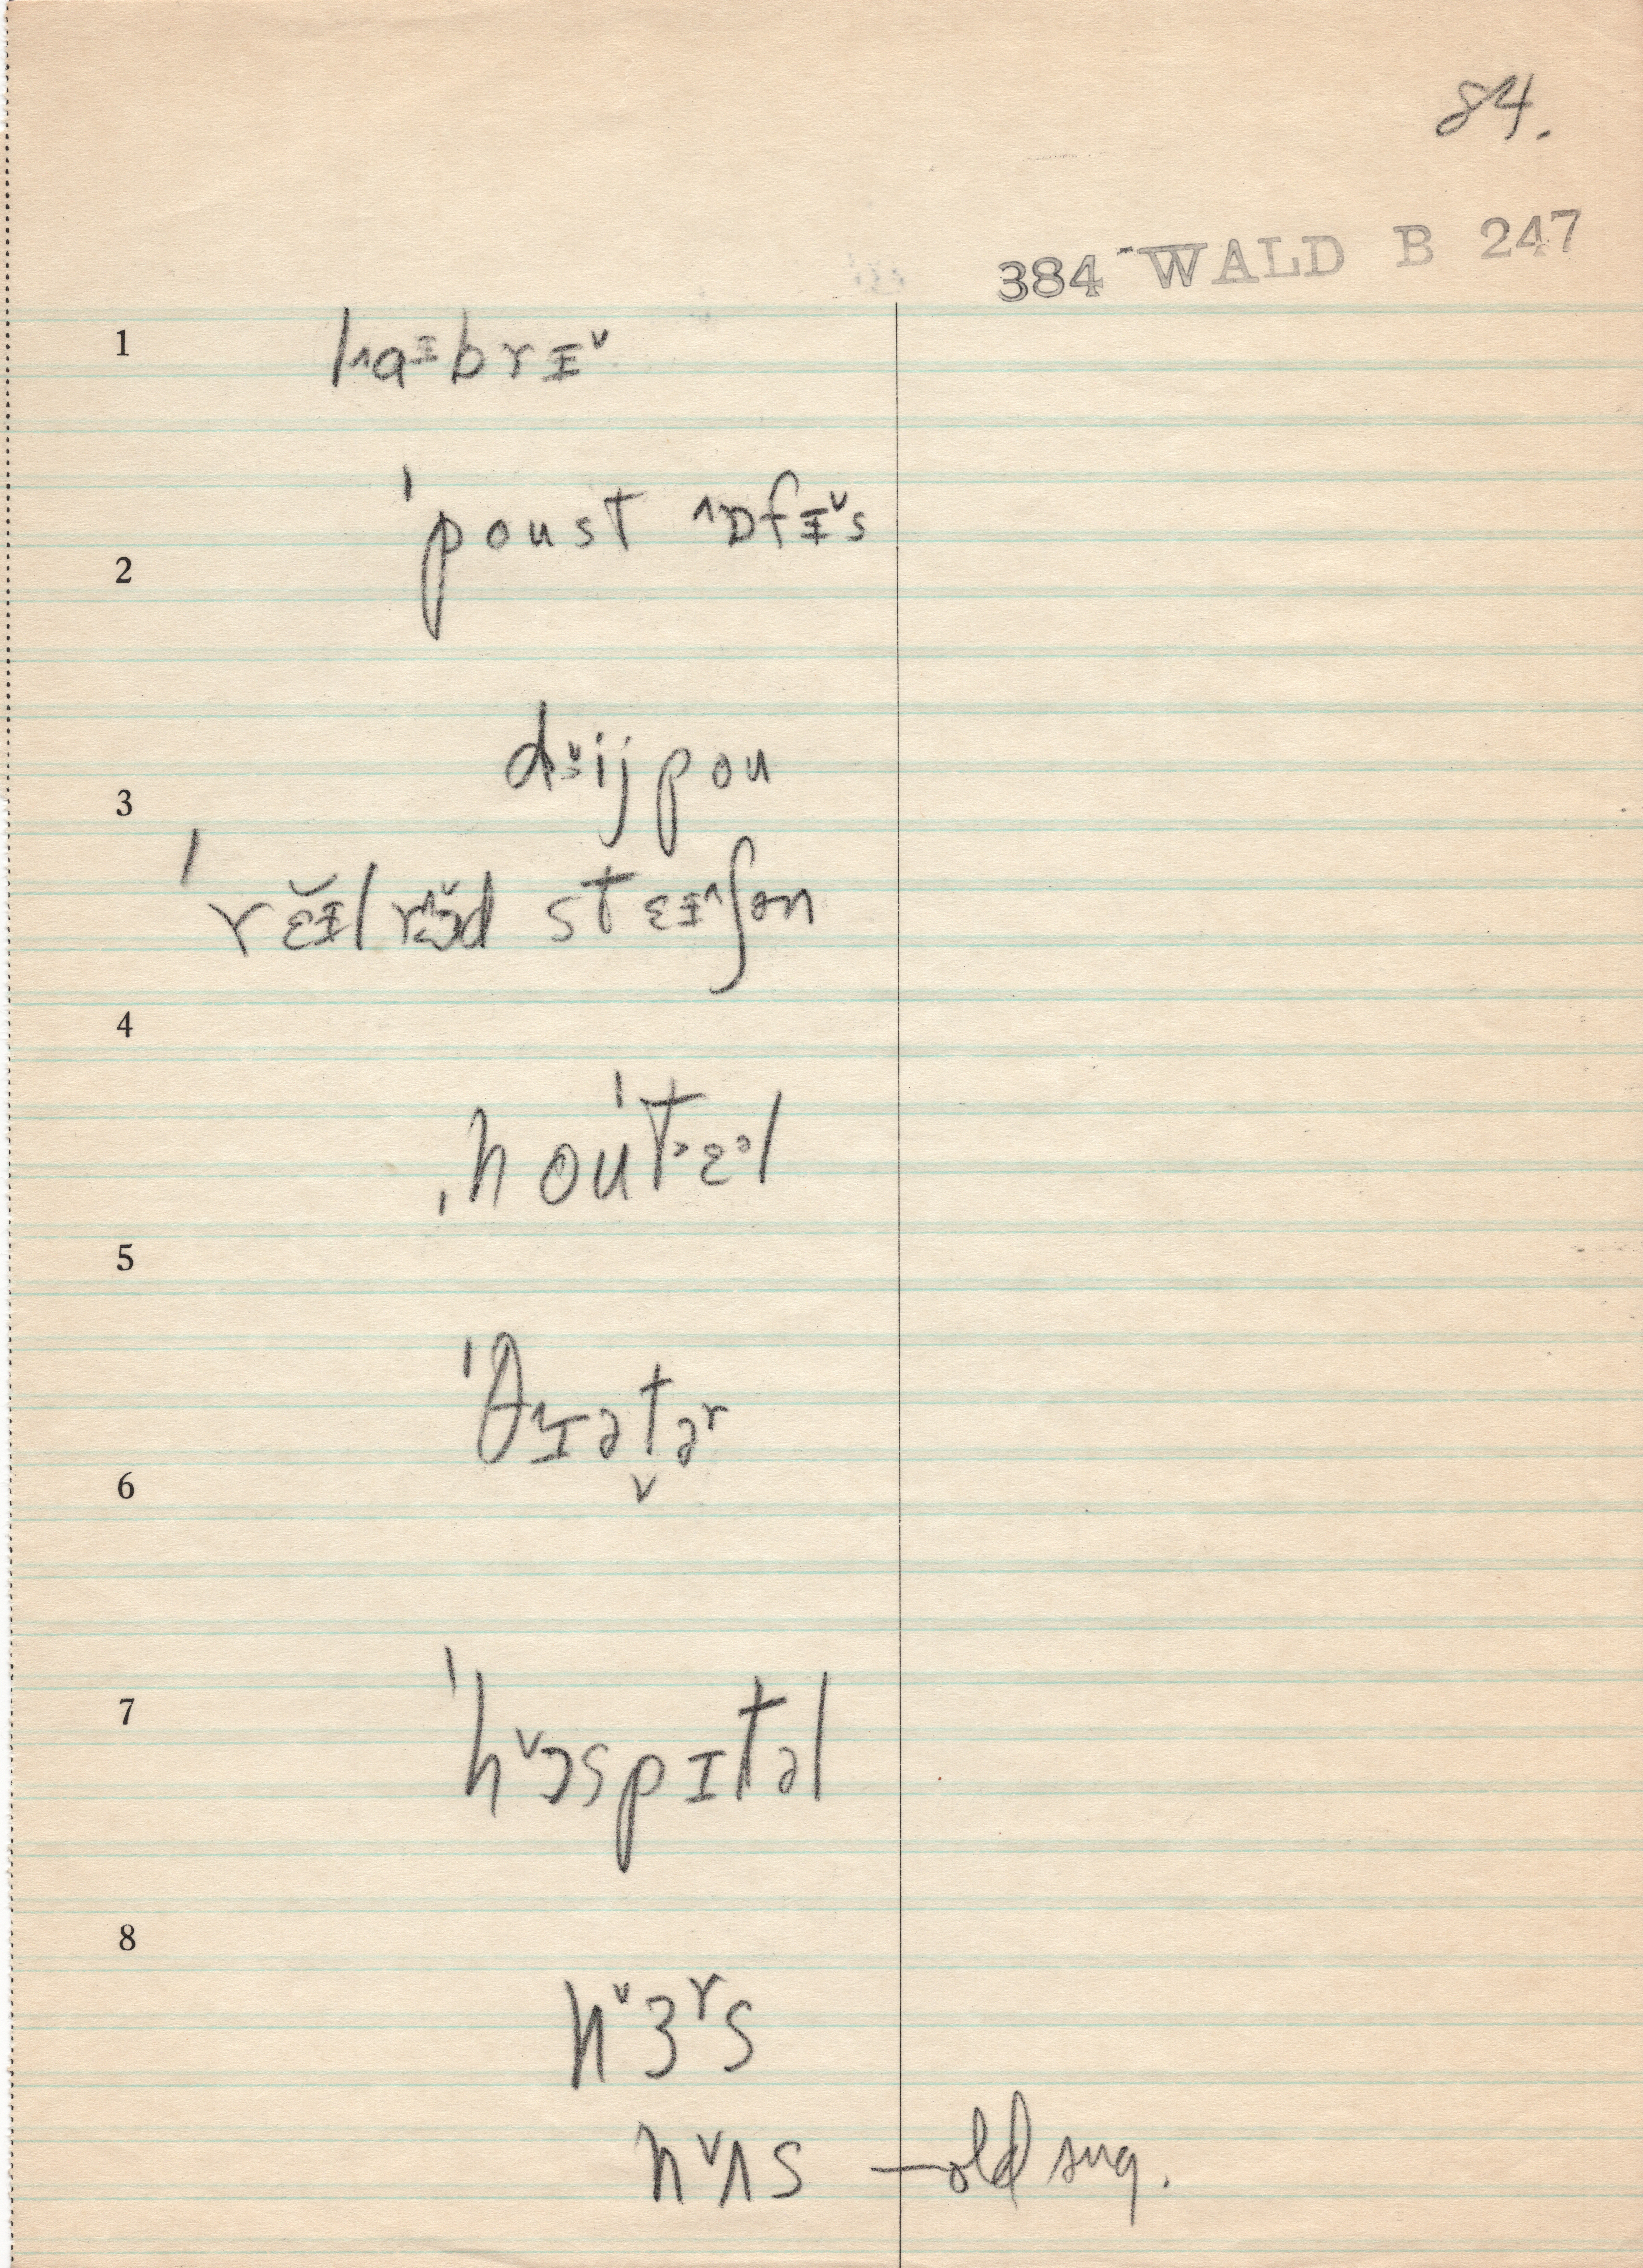 84.
384 WALD B 247
1 lˆaɪbrɪˇ
ˈpoust ˆɒfɪˇs
2
dˇijpou
3
ˈrɛ̆ɪ̆lrɔˆˇd stɛɪˆʃən
4
ˌhouˈt˃ɛᵊl
5
ˈθˆɪət̬əʳ
6
7 ˈhˇɔspɪtəl
8
nˇɜʳs
nˇʌs — old sug.